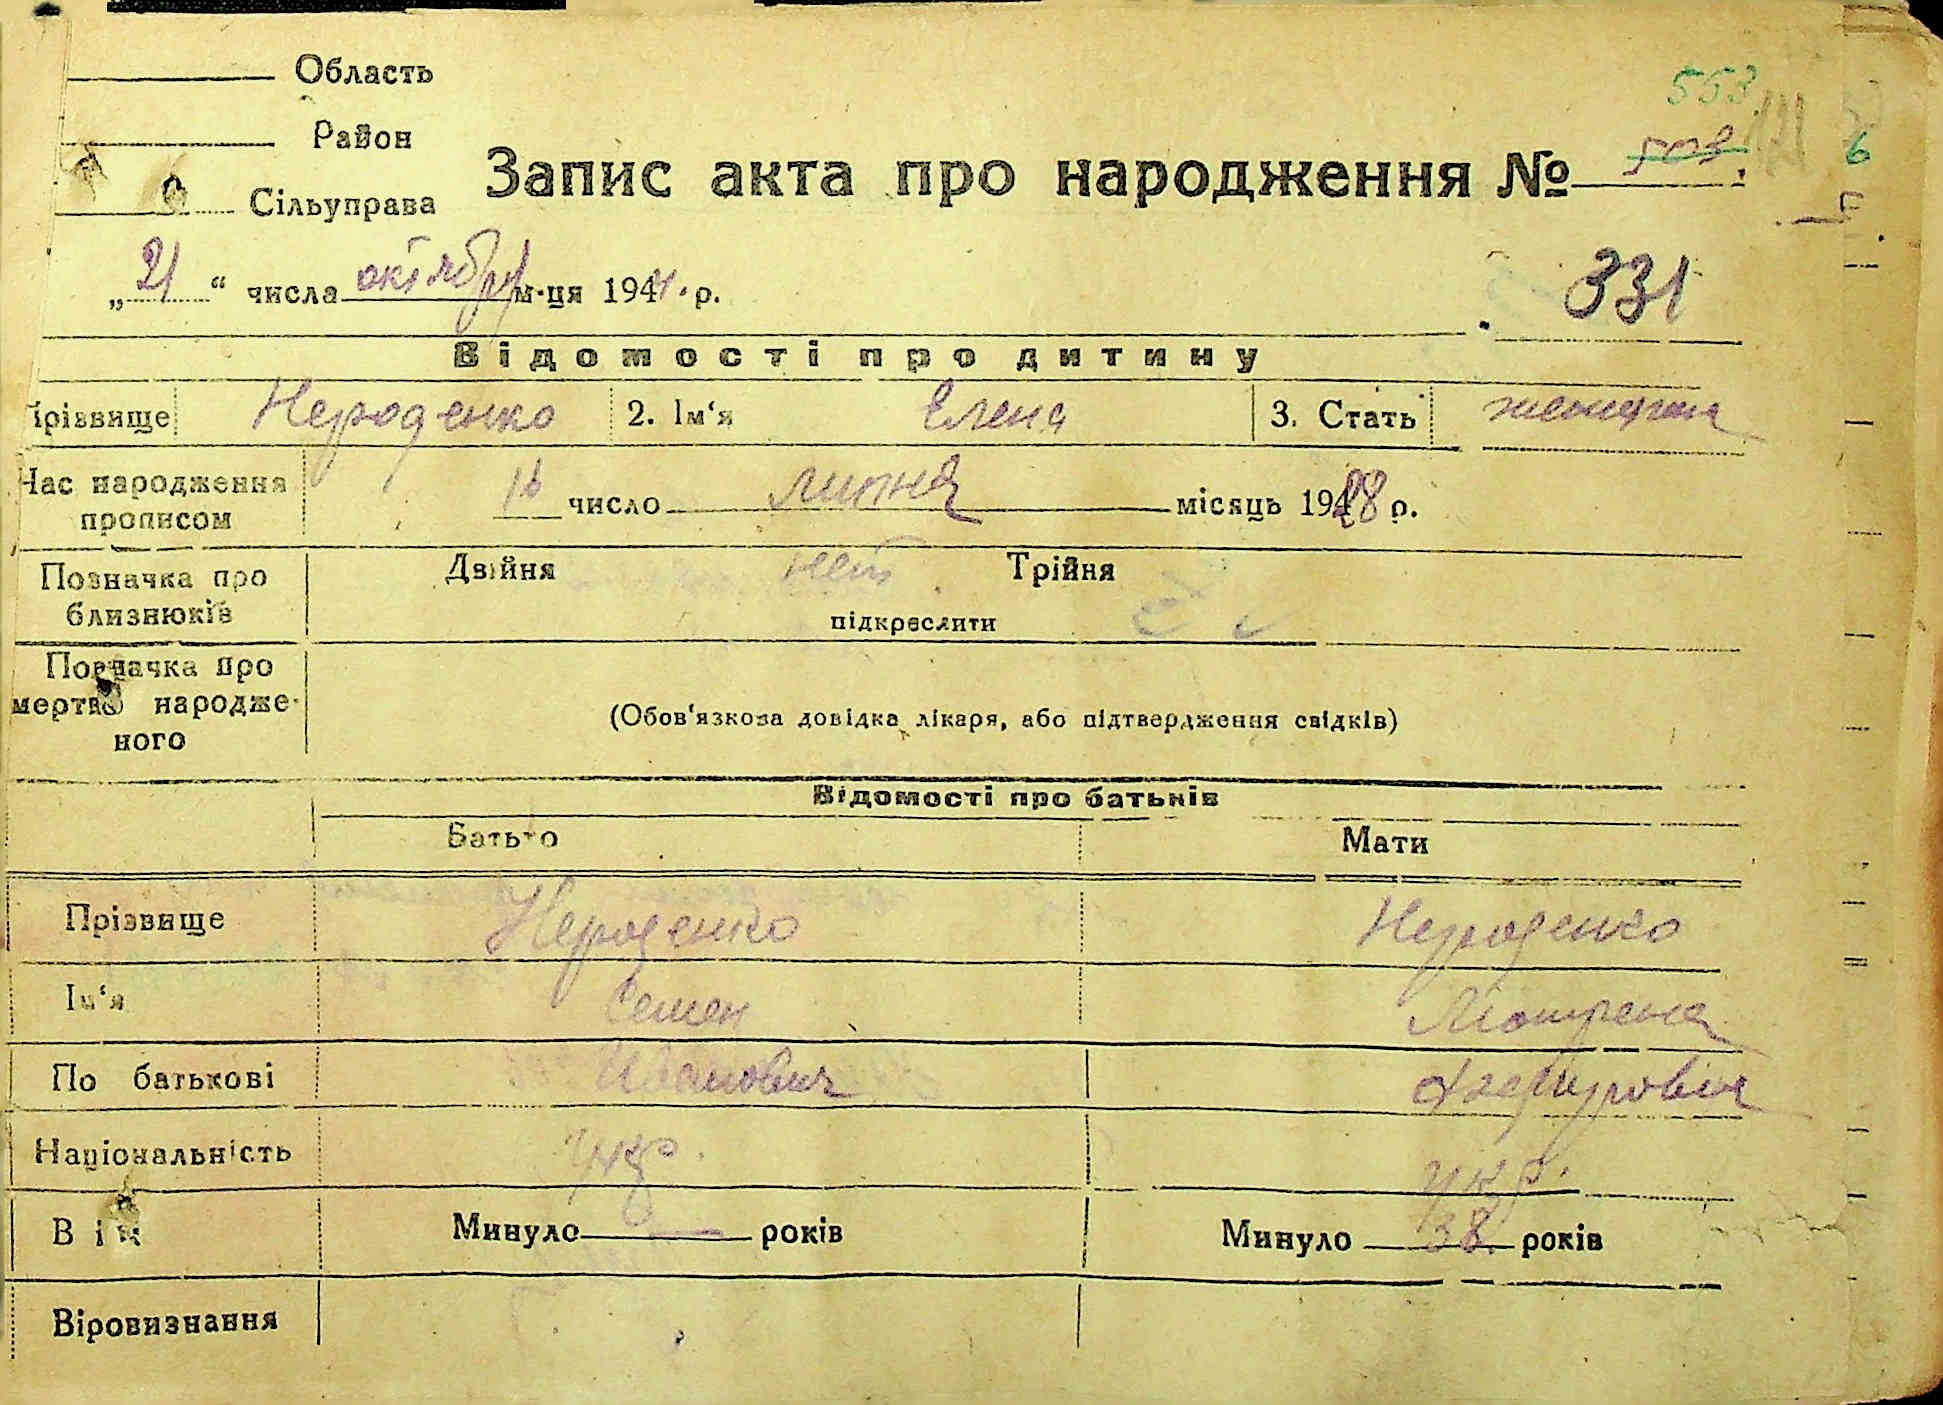 Область
553
Район
Запис акта про народження №
503
Сільуправа
„21“ числа октября м-ця 194 р.
331
Відомості про дитину
Прізвище Нероденко 2. Ім‘я Елена 3. Стать женщина
Час народження прописом 16 число липня місяць 1928 р.
Позначка про близнюків Двійня нет Трійня
підкреслити
Позначка про мертво народженого
(Обов‘язкова довідка лікаря, або підтвердження свідків)
Відомості про батьків
Батько Мати
Прізвище Нероденко Нероденко
Ім‘я Семен Мотрена
По батькові Иванович
Національність укр. укр.
Вік Минуло — років Минуло 38 років
Віровизнання